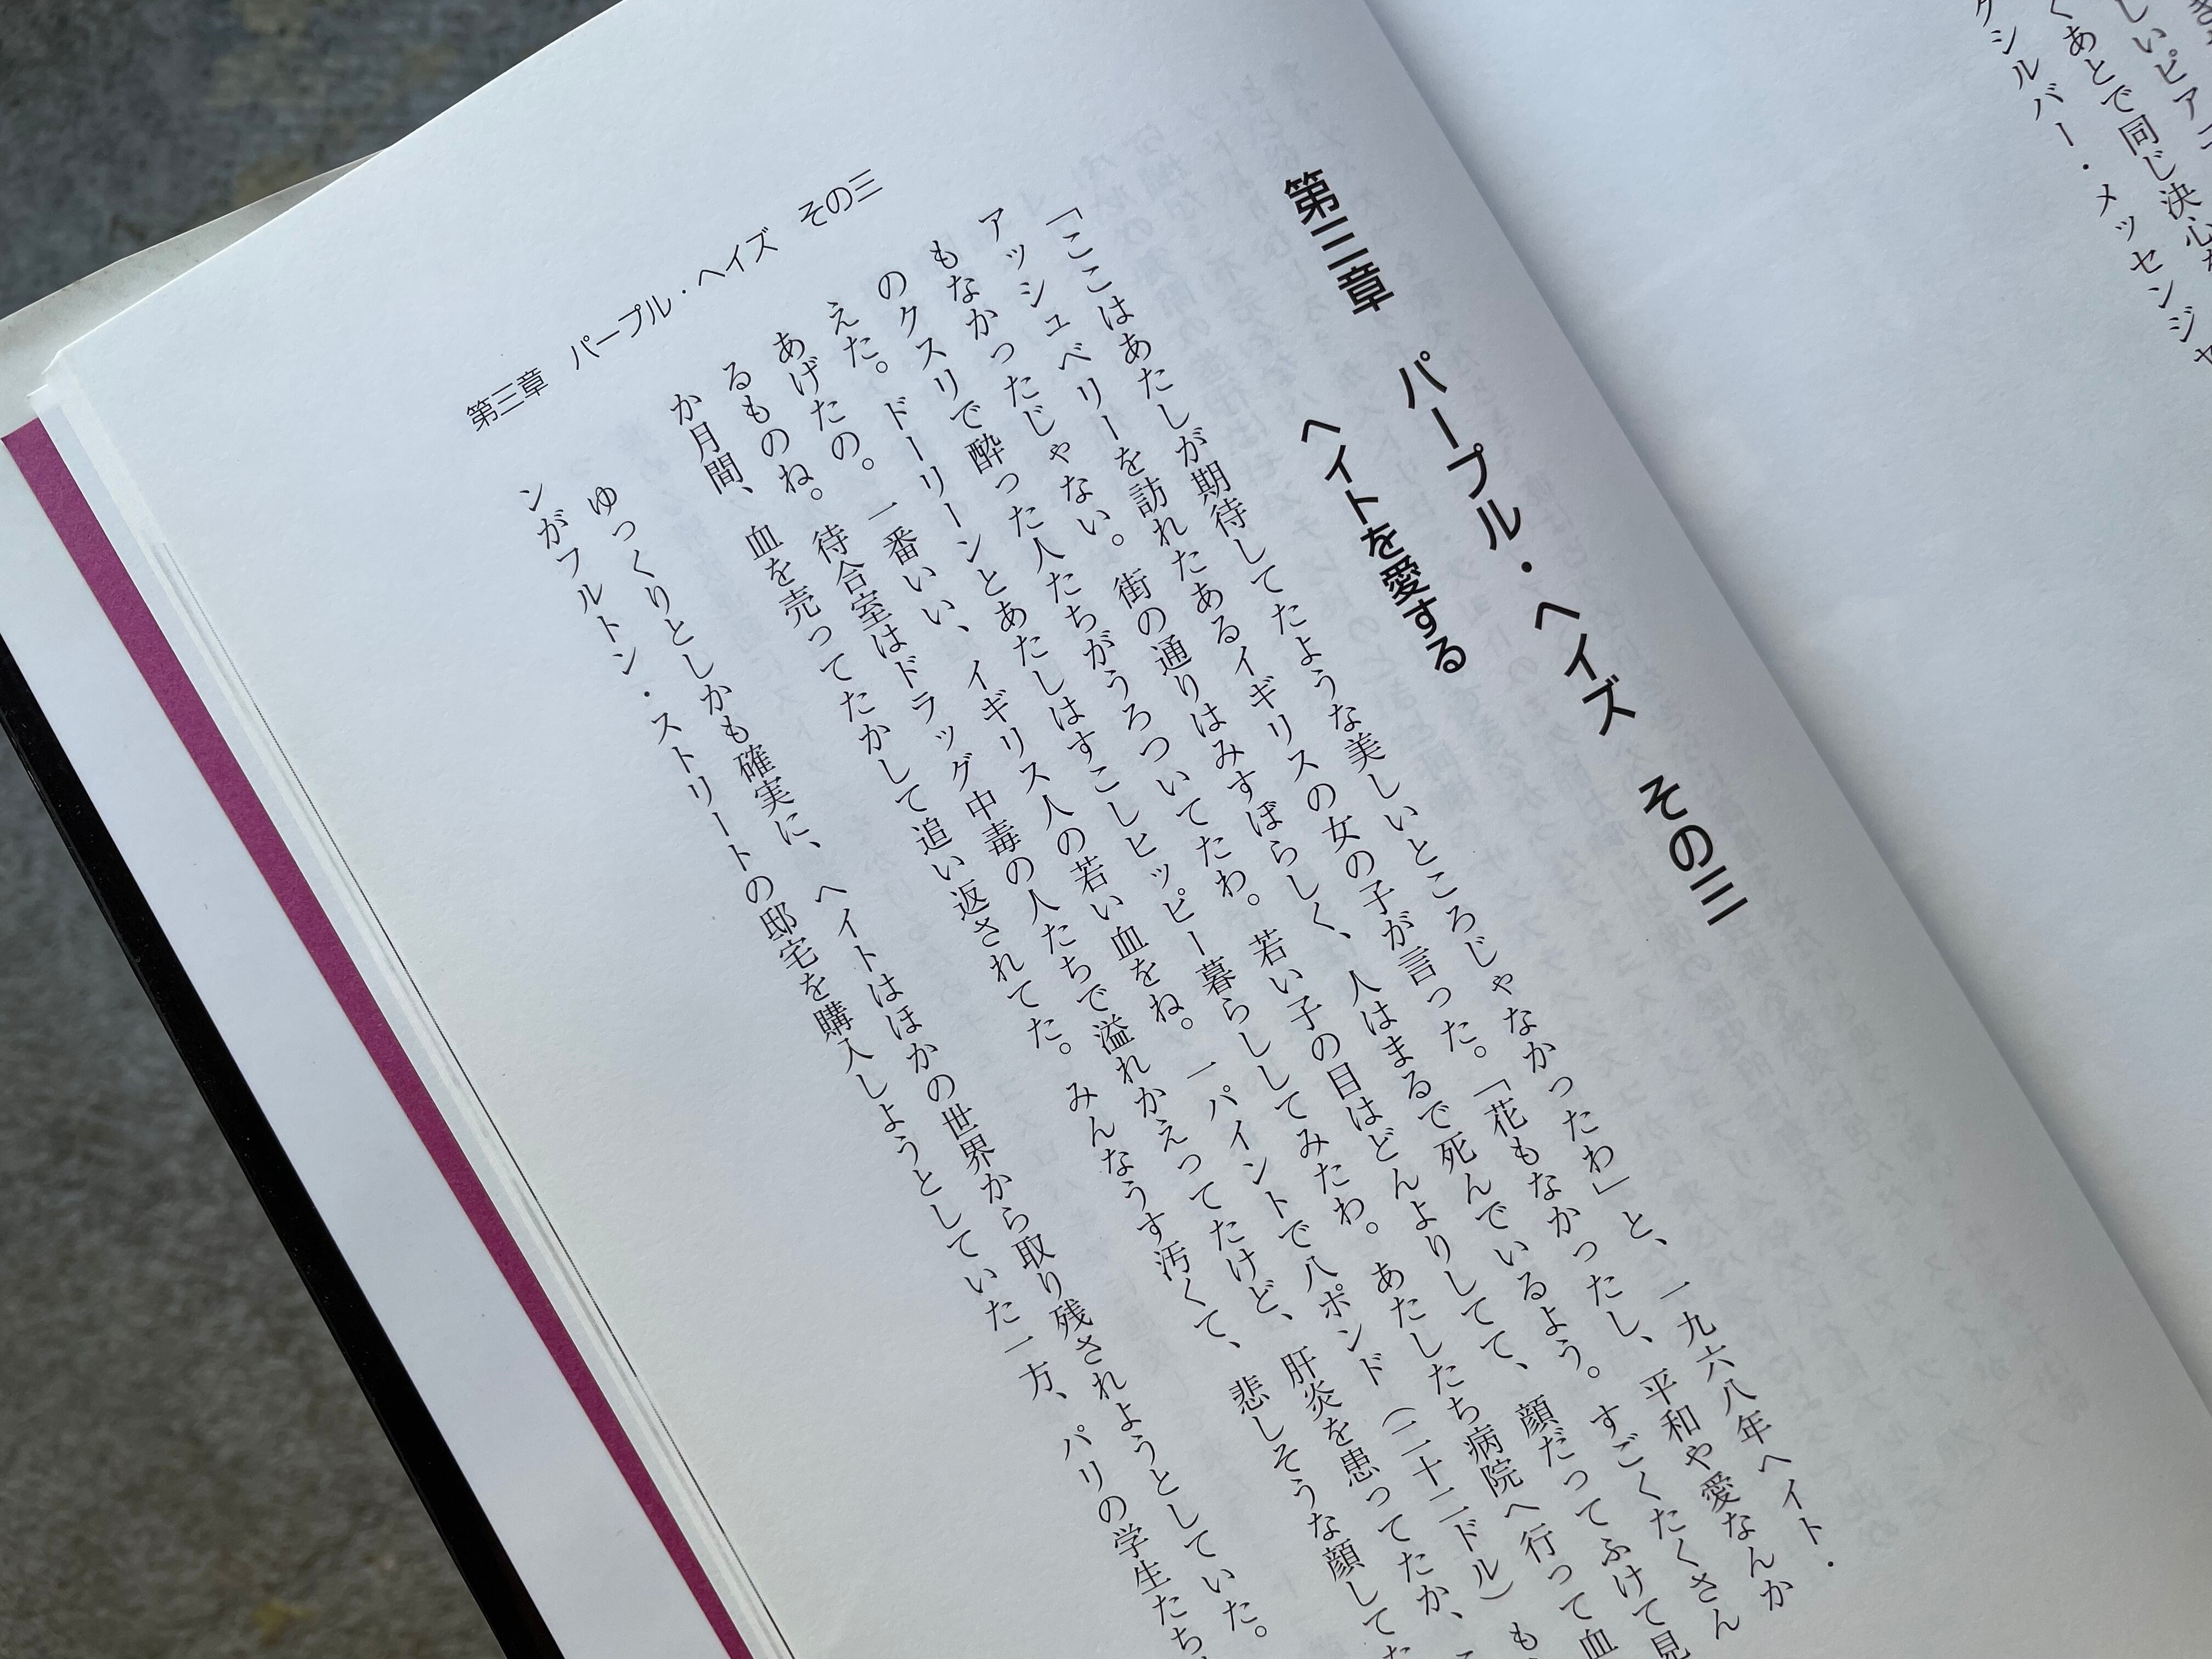 しいピアニ
くあとで同じ決心を
クシルバー・メッセンジャ
第三章　パープル・ヘイズ　その三
ヘイトを愛する
「ここはあたしが期待してたような美しいところじゃなかったわ」と、一九六八年ヘイト・
アッシュベリーを訪れたあるイギリスの女の子が言った。「花もなかったし、平和や愛なんか
もなかったじゃない。街の通りはみすぼらしく、人はまるで死んでいるよう。すごくたくさん
のクスリで酔った人たちがうろついてたわ。若い子の目はどんよりしてて、顔だってふけて見
えた。ドーリーンとあたしはすこしヒッピー暮らししてみたわ。あたしたち病院へ行って血
あげたの。一番いい、イギリス人の若い血をね。一パイントで八ポンド（二十二ドル）も
るものね。待合室はドラッグ中毒の人たちで溢れかえってたけど、肝炎を患ってたか、
か月間、血を売ってたかして追い返されてた。みんなうす汚くて、悲しそうな顔してた
ゆっくりとしかも確実に、ヘイトはほかの世界から取り残されようとしていた。
ンがフルトン・ストリートの邸宅を購入しようとしていた一方、パリの学生たち
第三章　パープル・ヘイズ　その三